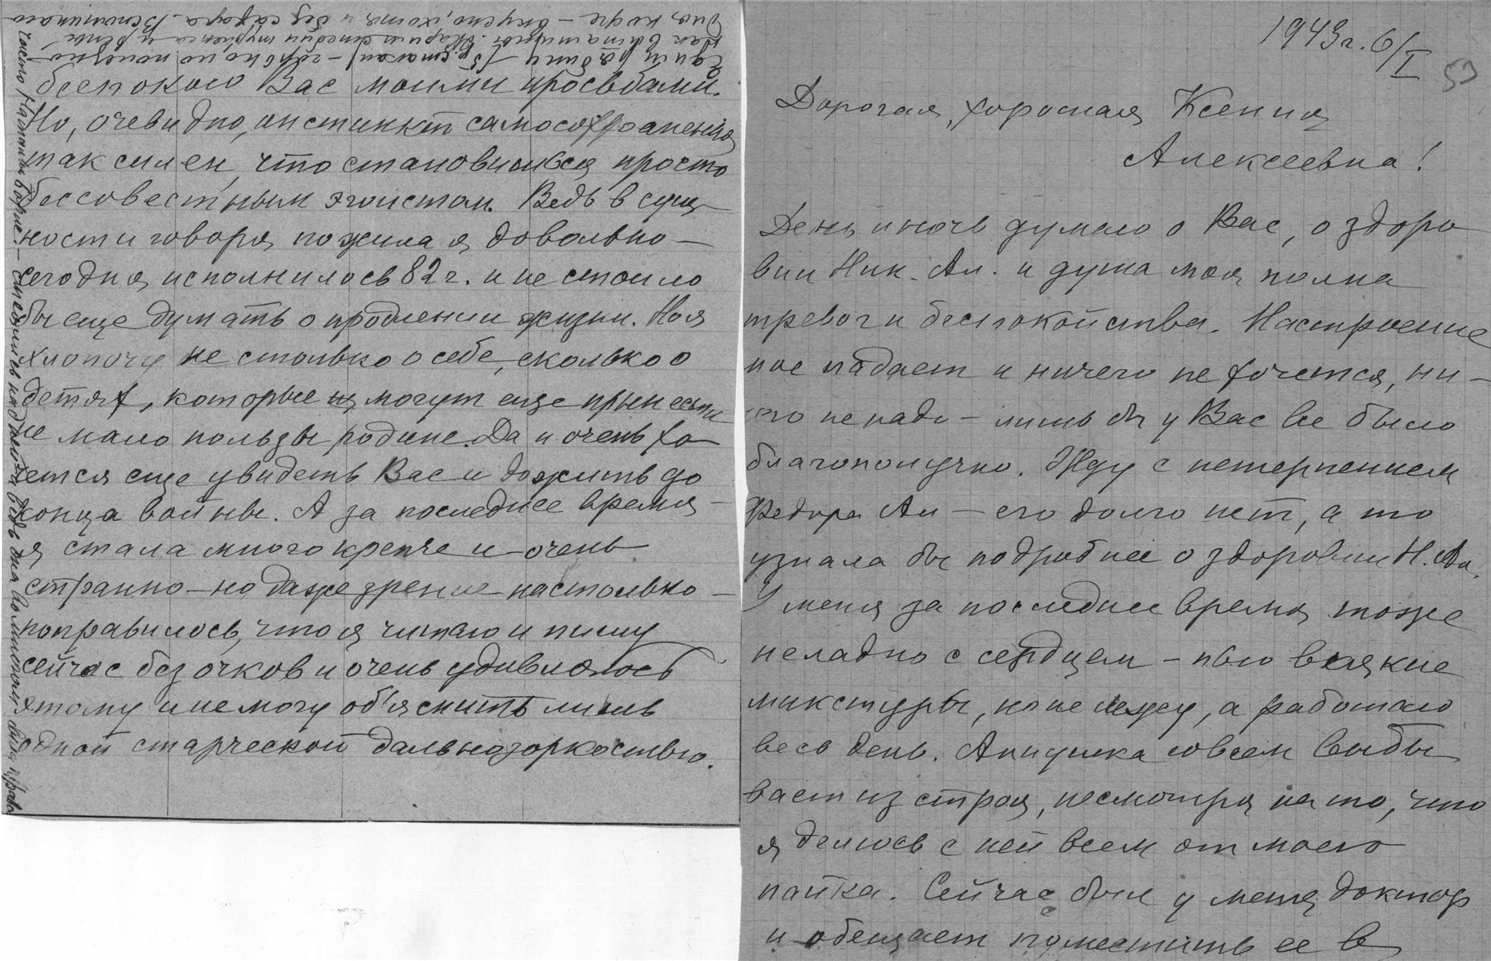 беспокою Вас моими просьбами.
Но, очевидно, инстинкт самосохранения
так силен, что становишься просто
бессовестным эгоистом. Ведь в сущ
ности говоря пожила я довольно –
сегодня исполнилось 82 г. и не стоило
бы еще думать о продлении жизни. Но я
хлопочу не столько о себе, сколько о
детях, которые могут еще принести
не мало пользы родине. Да и очень хо
чется еще увидеть Вас и дожить до
конца войны. А за последнее время –
я стала много крепче и – очень
странно – но даже зрение настолько –
поправилось, что я читаю и пишу
сейчас без очков и очень удивляюсь
этому и не могу об'яснить лишь
одной старческой дальнозоркостью.
1943 г. 6/I
53
Дорогая, хорошая Ксения
Алексеевна!
День и ночь думаю о Вас, о здоро
вии Ник. Ал. и душа моя полна
тревог и беспокойства. Настроение
мое падает и ничего не хочется, ни –
чего не надо – лишь бы у Вас все было
благополучно. Жду с нетерпением
Федора Ал – его долго нет, а то
узнала бы подробнее о здоровии Н. Ал.
У меня за последнее время тоже
неладно с сердцем – пью всякие
микстуры, но не лежу, а работаю
весь день. Аннушка совсем выбы
вает из строя, несмотря на то, что
я делюсь с ней всем от моего
пайка. Сейчас был у меня доктор
и обещает поместить ее в